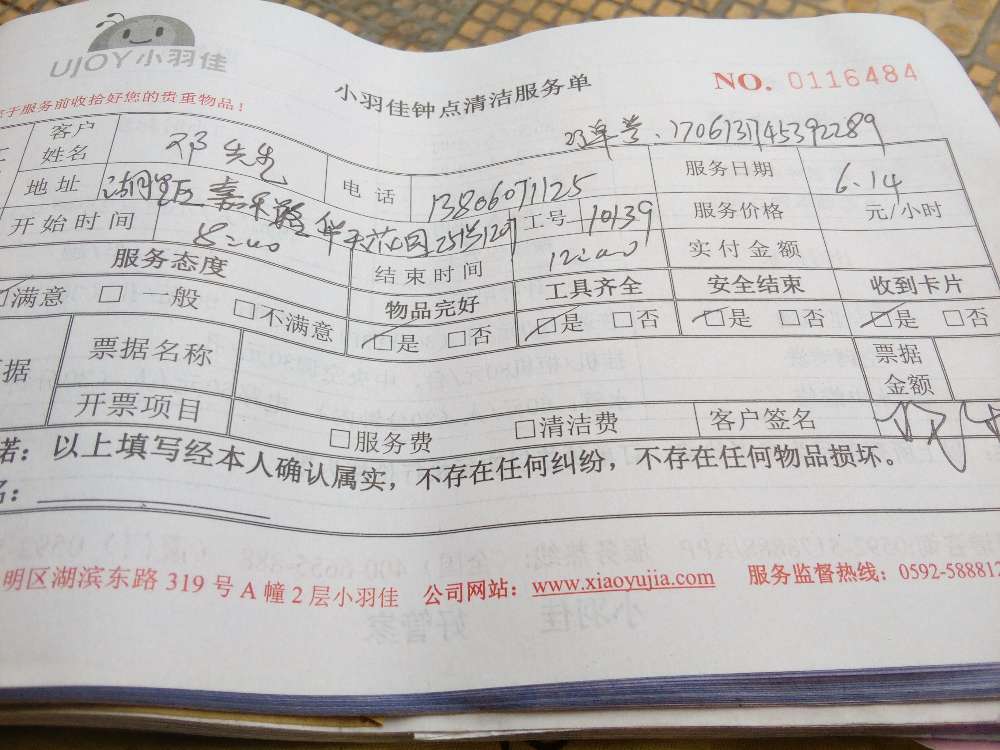 UJOY小羽佳
小羽佳钟点清洁服务单
NO. 0116484
于服务前收拾好您的贵重物品！
单号:1706131745392289
客户姓名 邓先生 电话 13806071125 服务日期 6.14
地址 湖里区嘉禾路 花园251号1207 工号 10139 服务价格 元/小时
开始时间 8:00 结束时间 12:00 实付金额
服务态度 物品完好 工具齐全 安全结束 收到卡片
满意 □ 般 □不满意 ☑是 □否 ☑是 □否 ☑是 □否 ☑是 □否
据 票据名称 票据金额
开票项目 □服务费 □清洁费 客户签名
诺：以上填写经本人确认属实，不存在任何纠纷，不存在任何物品损坏。
名：
明区湖滨东路 319 号 A 幢 2 层小羽佳 公司网站：www.xiaoyujia.com 服务监督热线：0592-588812